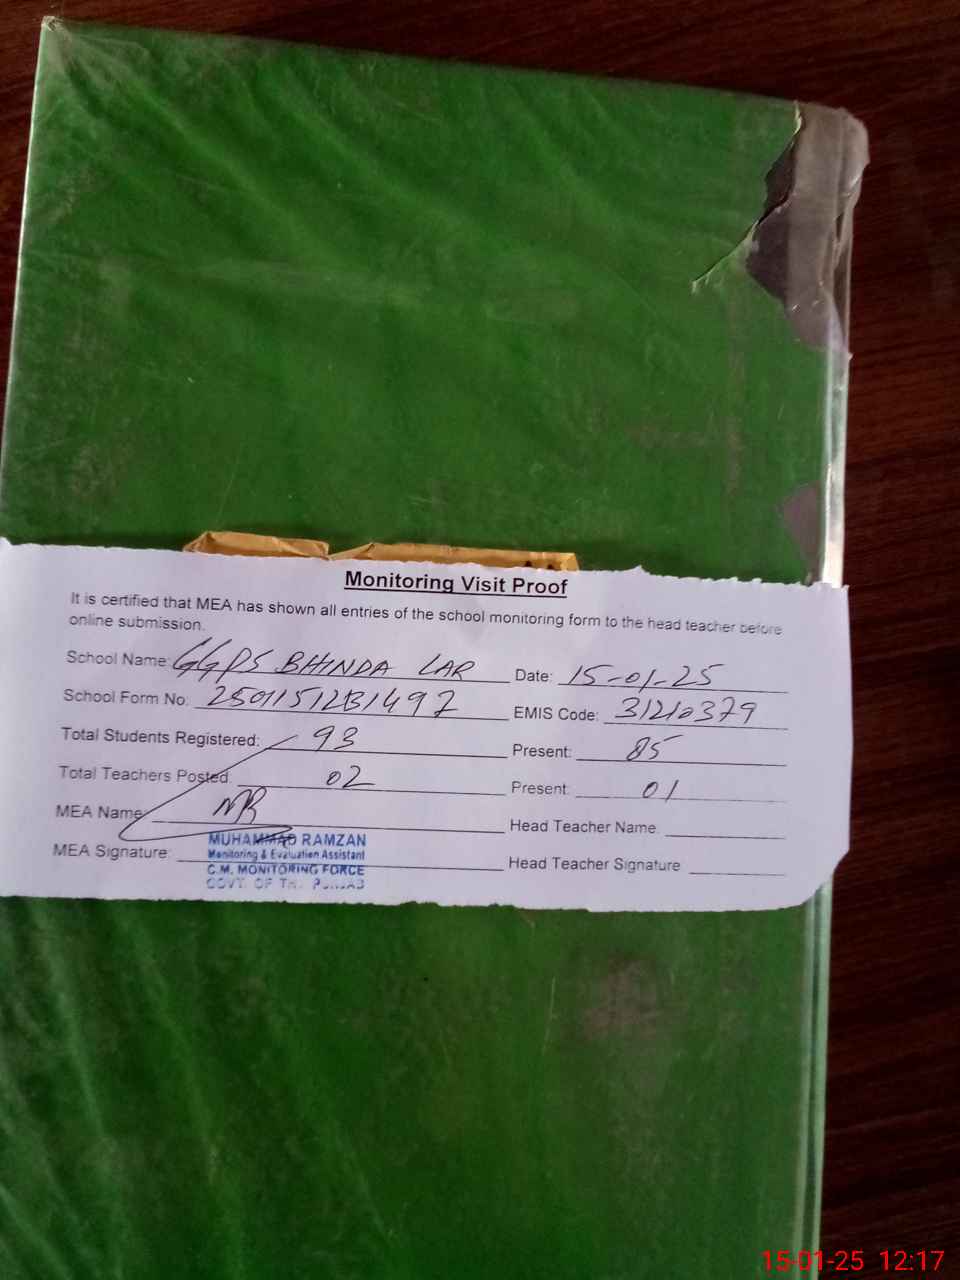 Monitoring Visit Proof
It is certified that MEA has shown all entries of the school monitoring form to the head teacher before
online submission.
School Name: GGPS BHINDA LAR Date: 15-01-25
School Form No: EMIS Code: 31210379
Total Students Registered: 93 Present: 85
Total Teachers Posted: 02 Present: 01
MEA Name: MR Head Teacher Name:
MEA Signature: Head Teacher Signature
MUHAMMAD RAMZAN
Monitoring & Evaluation Assistant
C.M. MONITORING FORCE
GOVT. OF THE PUNJAB
15-01-25 12:17